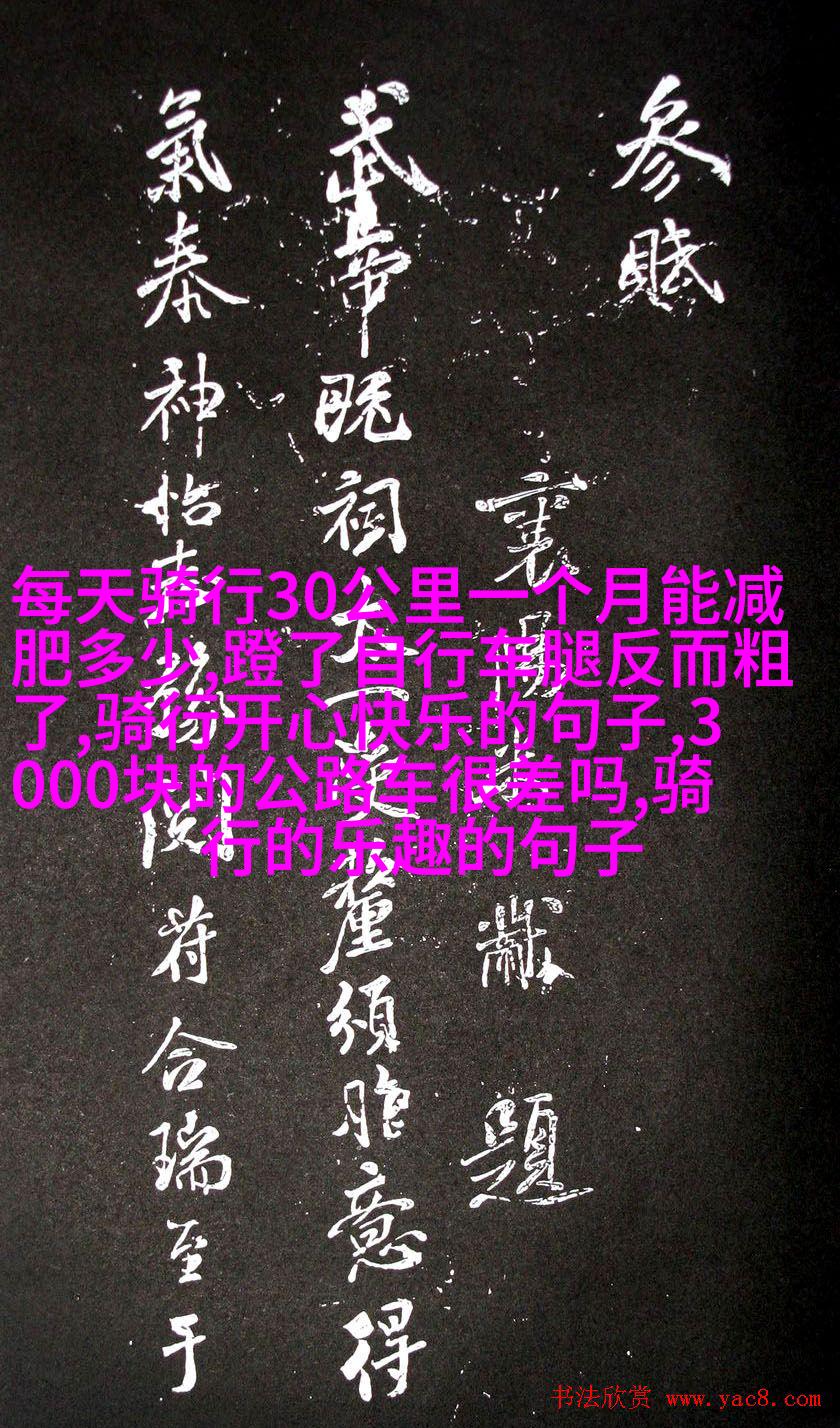 參賦
襄陽米黻 題
武帝既祠太一夾釐須胙意得
氣泰神怡
閱符合瑞至于
每天骑行30公里一个月能减
肥多少,蹬了自行车腿反而粗
了,骑行开心快乐的句子,3
000块的公路车很差吗,骑
行的乐趣的句子
书法欣赏 www.yac8.com